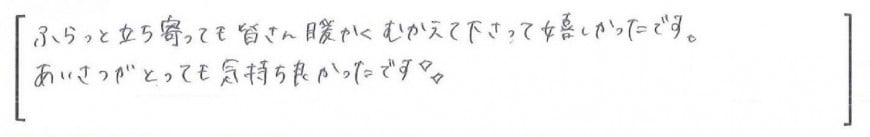 ふらっと立ち寄っても皆さん暖かくむかえて下さって嬉しかったです。
あいさつがとっても気持ち良かったです◇◇